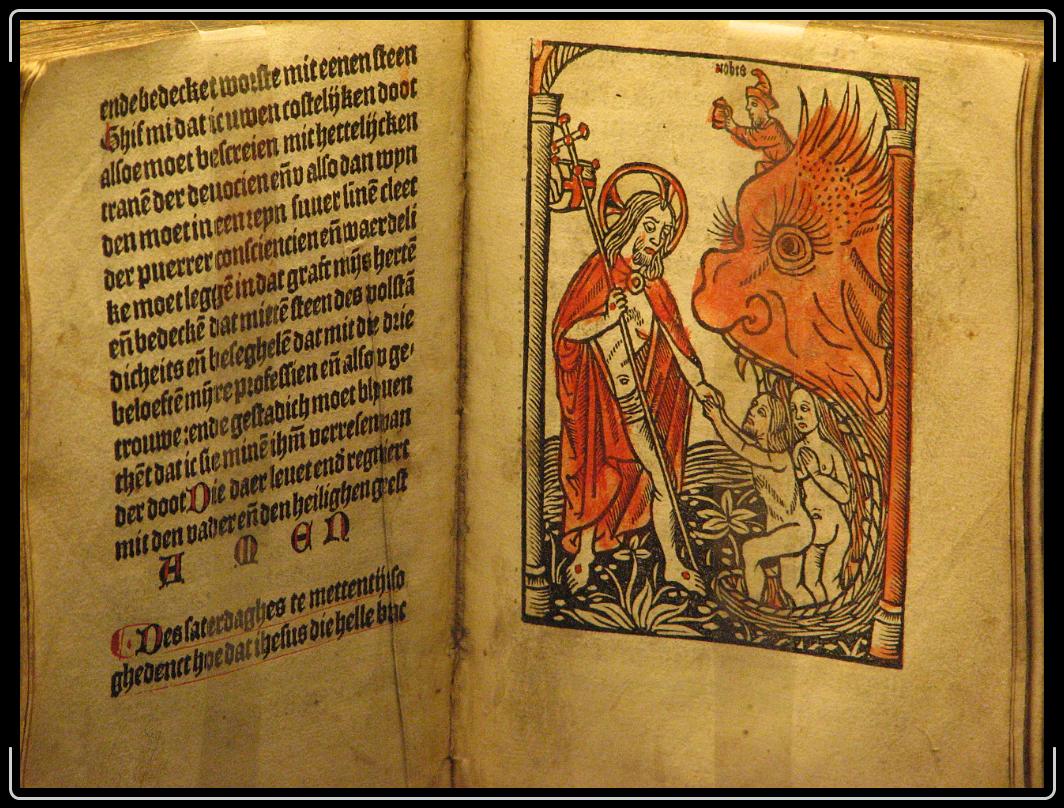 ende bedecket worste mit eenen steen
Ghif mi dat ic uwen costelijken doot
alsoe moet bescreien mit hertelijcken
tranē der deuocien en̄ v also dan wyn
den moet in een reyn suuer linē cleet
der puerrer consciencien en̄ waerdeli
ke moet leggē in dat graft mijs hertē
en̄ bedeckē dat mitē steen des volstā
dicheits en̄ beseghelē dat mit die drie
beloeftē mijre professien en̄ also v ge
trouwe: ende gestadich moet blyuen
thēt dat ic sie minē ihm̄ verresen van
der doot Die daer leuet end regniert
mit den vader en̄ den heilighen gest
A M E N
Des saterdaghes te mettentijt so
ghedenct hoe dat ihesus die helle brac